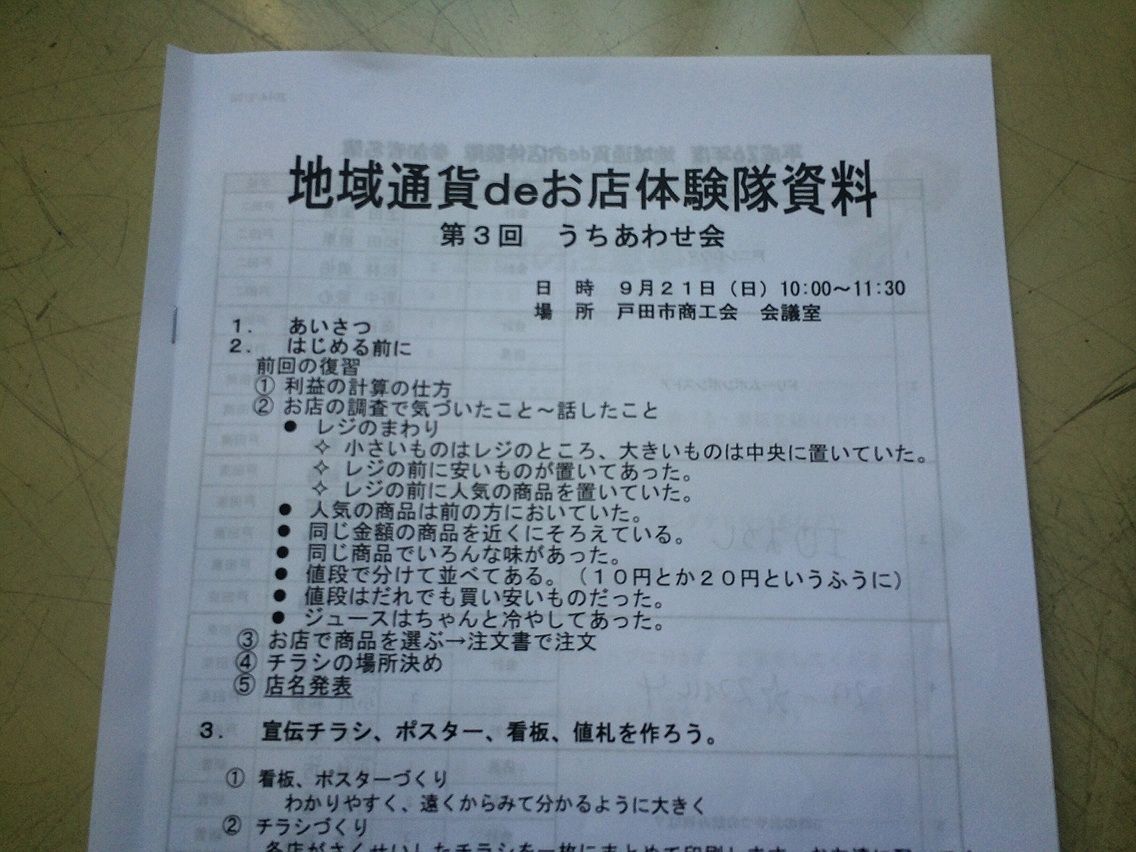 地域通貨deお店体験隊資料
第３回　うちあわせ会
日　時　９月２１日（日）10:00～11:30
場　所　戸田市商工会　会議室
１．　あいさつ
２．　はじめる前に
前回の復習
① 利益の計算の仕方
② お店の調査で気づいたこと～話したこと
● レジのまわり
✧ 小さいものはレジのところ、大きいものは中央に置いていた。
✧ レジの前に安いものが置いてあった。
✧ レジの前に人気の商品を置いていた。
● 人気の商品は前の方においていた。
● 同じ金額の商品を近くにそろえている。
● 同じ商品でいろんな味があった。
● 値段で分けて並べてある。（１０円とか２０円というふうに）
● 値段はだれでも買い安いものだった。
● ジュースはちゃんと冷やしてあった。
③ お店で商品を選ぶ→注文書で注文
④ チラシの場所決め
⑤ 店名発表
３．　宣伝チラシ、ポスター、看板、値札を作ろう。
① 看板、ポスターづくり
わかりやすく、遠くからみて分かるように大きく
② チラシづくり
各店がさくせいしたチラシを一枚にまとめて印刷します。